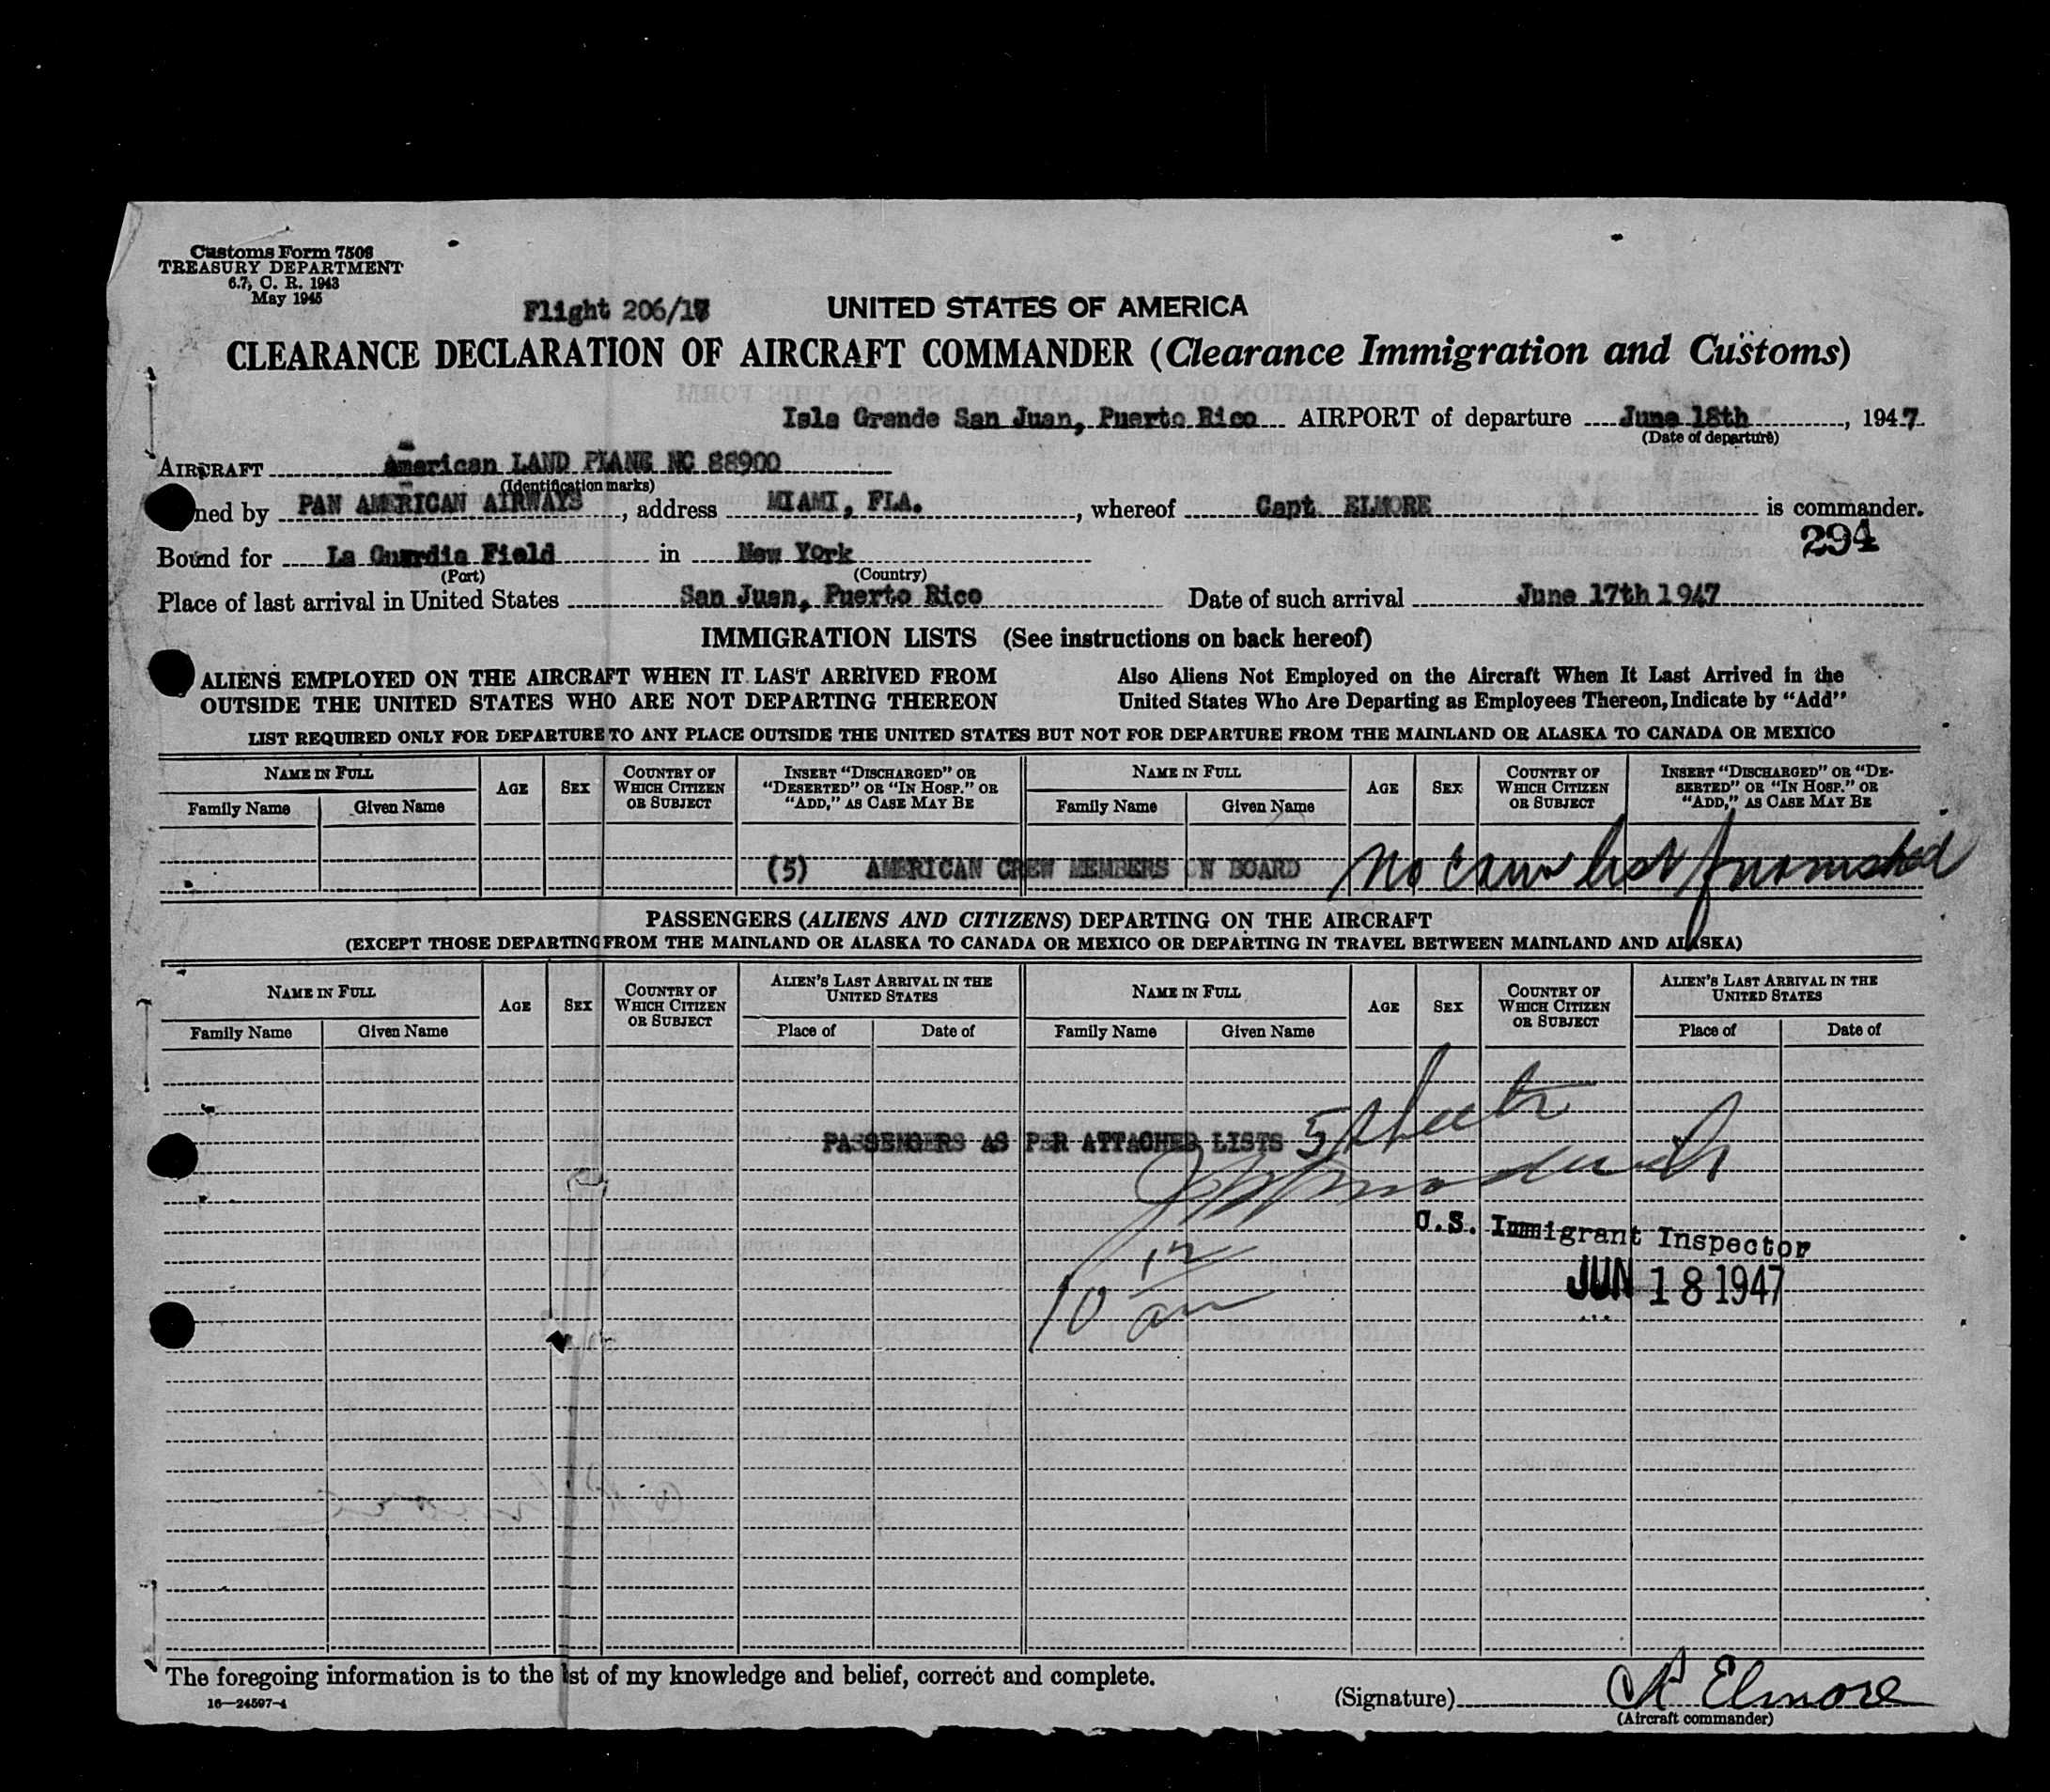 Customs Form 7509
TREASURY DEPARTMENT
6.7, C. R. 1943
May 1945
Flight 206/17
UNITED STATES OF AMERICA
CLEARANCE DECLARATION OF AIRCRAFT COMMANDER (Clearance Immigration and Customs)
Isla Grande San Juan, Puerto Rico AIRPORT of departure June 18th, 1947
(Date of departure)
AIRCRAFT American LAND PLANE NC 88900
(Identification marks)
ned by PAN AMERICAN AIRWAYS, address MIAMI, FLA., whereof Capt ELMORE is commander.
294
Bound for La Guardia Field in New York
(Port) (Country)
Place of last arrival in United States San Juan, Puerto Rico Date of such arrival June 17th 1947
IMMIGRATION LISTS (See instructions on back hereof)
ALIENS EMPLOYED ON THE AIRCRAFT WHEN IT LAST ARRIVED FROM
OUTSIDE THE UNITED STATES WHO ARE NOT DEPARTING THEREON
Also Aliens Not Employed on the Aircraft When It Last Arrived in the
United States Who Are Departing as Employees Thereon, Indicate by "Add"
LIST REQUIRED ONLY FOR DEPARTURE TO ANY PLACE OUTSIDE THE UNITED STATES BUT NOT FOR DEPARTURE FROM THE MAINLAND OR ALASKA TO CANADA OR MEXICO
NAME IN FULL
Family Name Given Name
AGE
SEX
COUNTRY OF
WHICH CITIZEN
OR SUBJECT
INSERT "DISCHARGED" OR
"DESERTED" OR "IN HOSP." OR
"ADD," AS CASE MAY BE
NAME IN FULL
Family Name Given Name
AGE
SEX
COUNTRY OF
WHICH CITIZEN
OR SUBJECT
INSERT "DISCHARGED" OR "DE-
SERTED" OR "IN HOSP." OR
"ADD," AS CASE MAY BE
(5) AMERICAN CREW MEMBERS ON BOARD No crew list furnished
PASSENGERS (ALIENS AND CITIZENS) DEPARTING ON THE AIRCRAFT
(EXCEPT THOSE DEPARTING FROM THE MAINLAND OR ALASKA TO CANADA OR MEXICO OR DEPARTING IN TRAVEL BETWEEN MAINLAND AND ALASKA)
NAME IN FULL
Family Name Given Name
AGE
SEX
COUNTRY OF
WHICH CITIZEN
OR SUBJECT
ALIEN'S LAST ARRIVAL IN THE
UNITED STATES
Place of Date of
NAME IN FULL
Family Name Given Name
AGE
SEX
COUNTRY OF
WHICH CITIZEN
OR SUBJECT
ALIEN'S LAST ARRIVAL IN THE
UNITED STATES
Place of Date of
PASSENGERS AS PER ATTACHED LISTS 5 sheets
U.S. Immigrant Inspector
JUN 18 1947
The foregoing information is to the st of my knowledge and belief, correct and complete.
16—24597-4
(Signature) Elmore
(Aircraft commander)